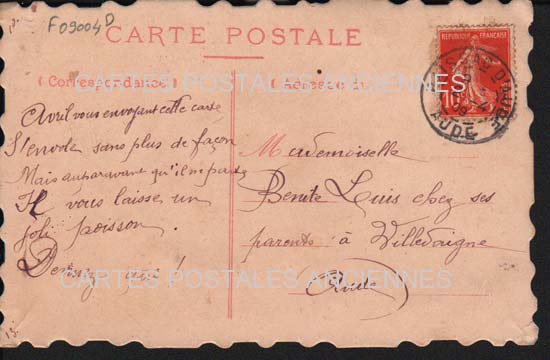 F09004D
CARTE POSTALE
REPUBLIQUE FRANÇAISE
10
AUDE
( Correspondance )
( Adresse )
CARTES POSTALES ANCIENNES
Avril vous envoyant cette carte
S'envole sans plus de façon
Mais auparavant qu'il ne parte
Il vous laisse un
joli poisson.
Mademoiselle
Benite Luis chez ses
parents à Villedaigne
Aude
CARTES POSTALES ANCIENNES